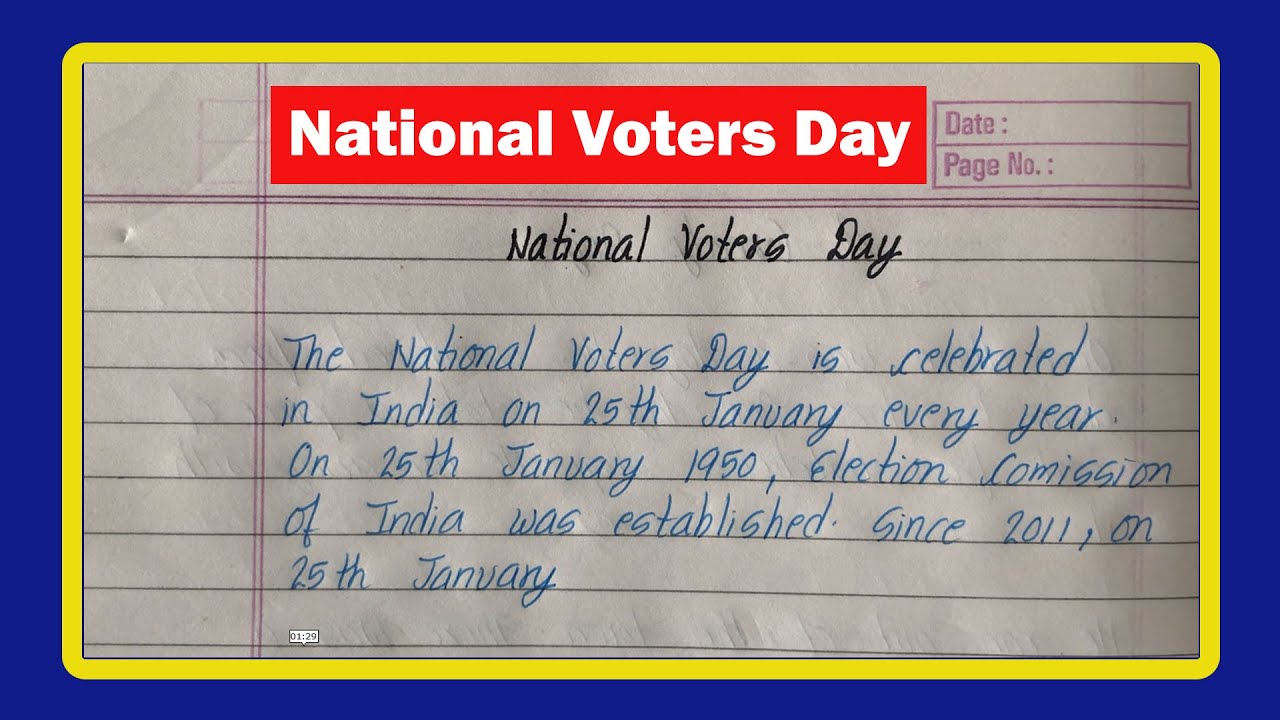 National Voters Day
Date :
Page No. :
National Voters Day
The National Voters Day is celebrated
in India on 25th January every year.
On 25th January 1950, Election Comission
of India was established. Since 2011, on
25th January
01:29